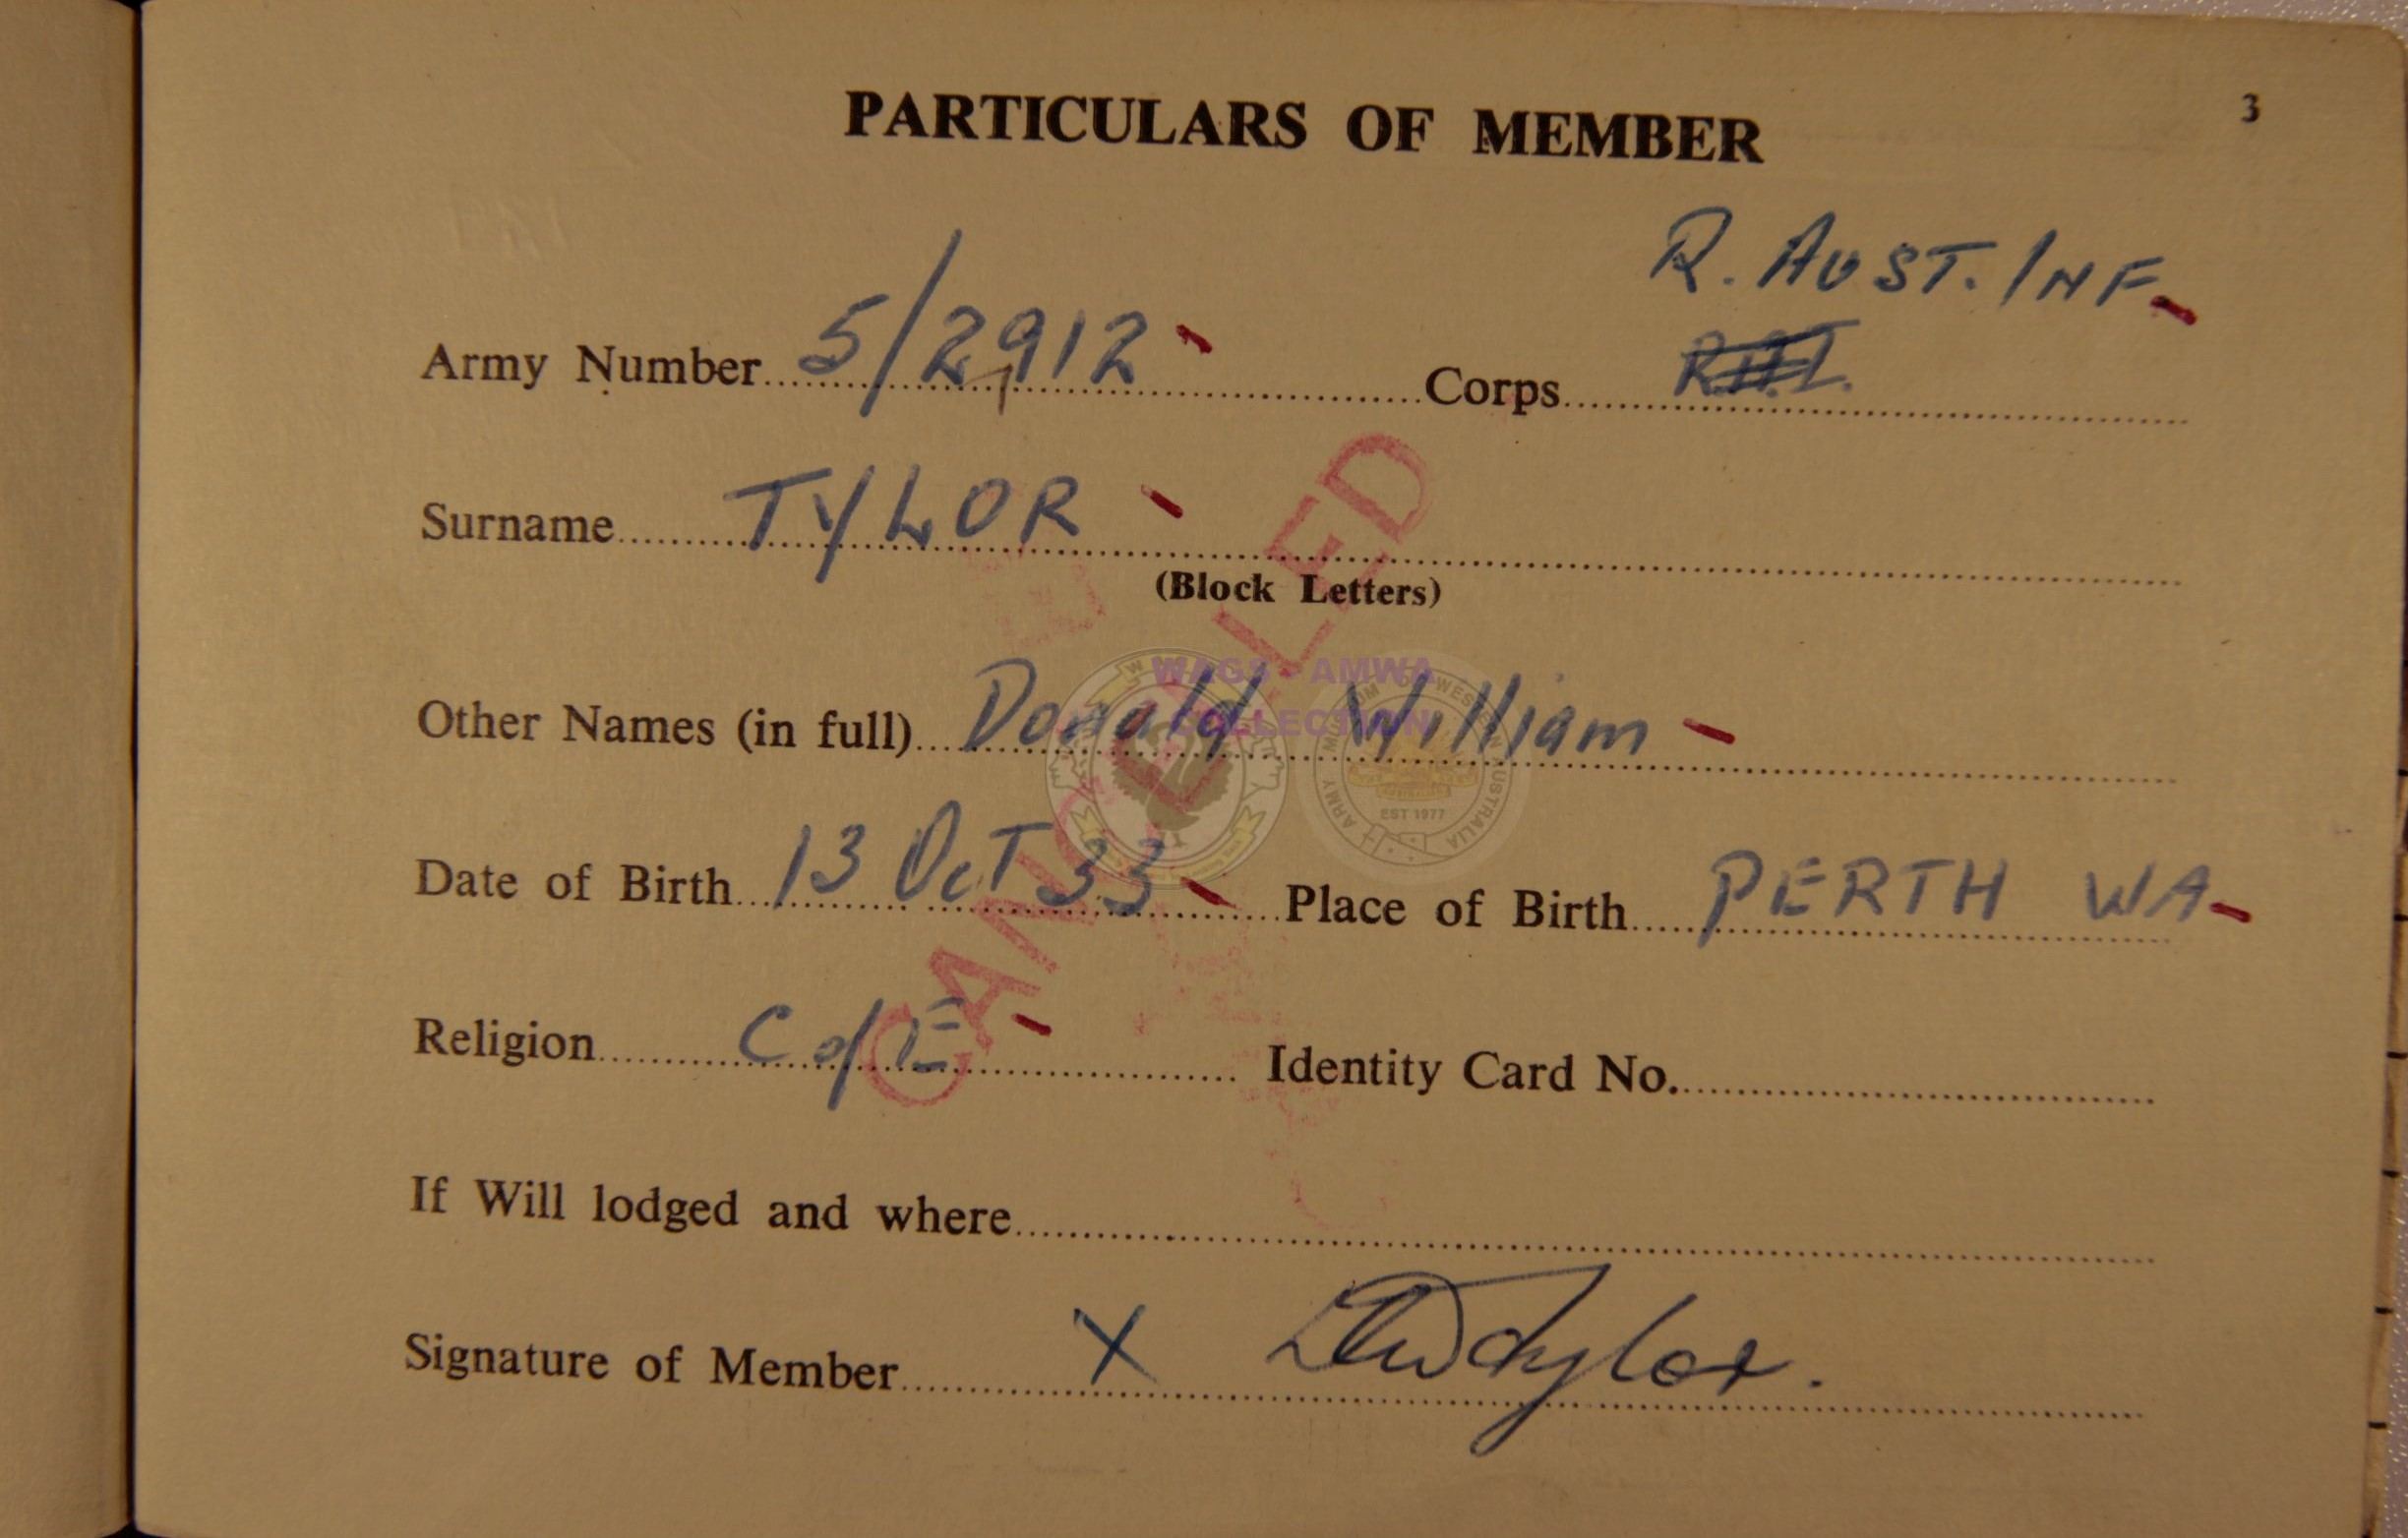 3
PARTICULARS OF MEMBER
R. AUST. INF
Army Number 5/2912 Corps R.A.I.
Surname TYLOR
(Block Letters)
WAGS - AMWA
COLLECTION
Other Names (in full) Donald William
ARMY MUSEUM OF WESTERN AUSTRALIA
EST 1977
Date of Birth 13 Oct 33 Place of Birth PERTH WA
Religion C of E Identity Card No.
If Will lodged and where
Signature of Member X DW Tylor.
CANCELLED